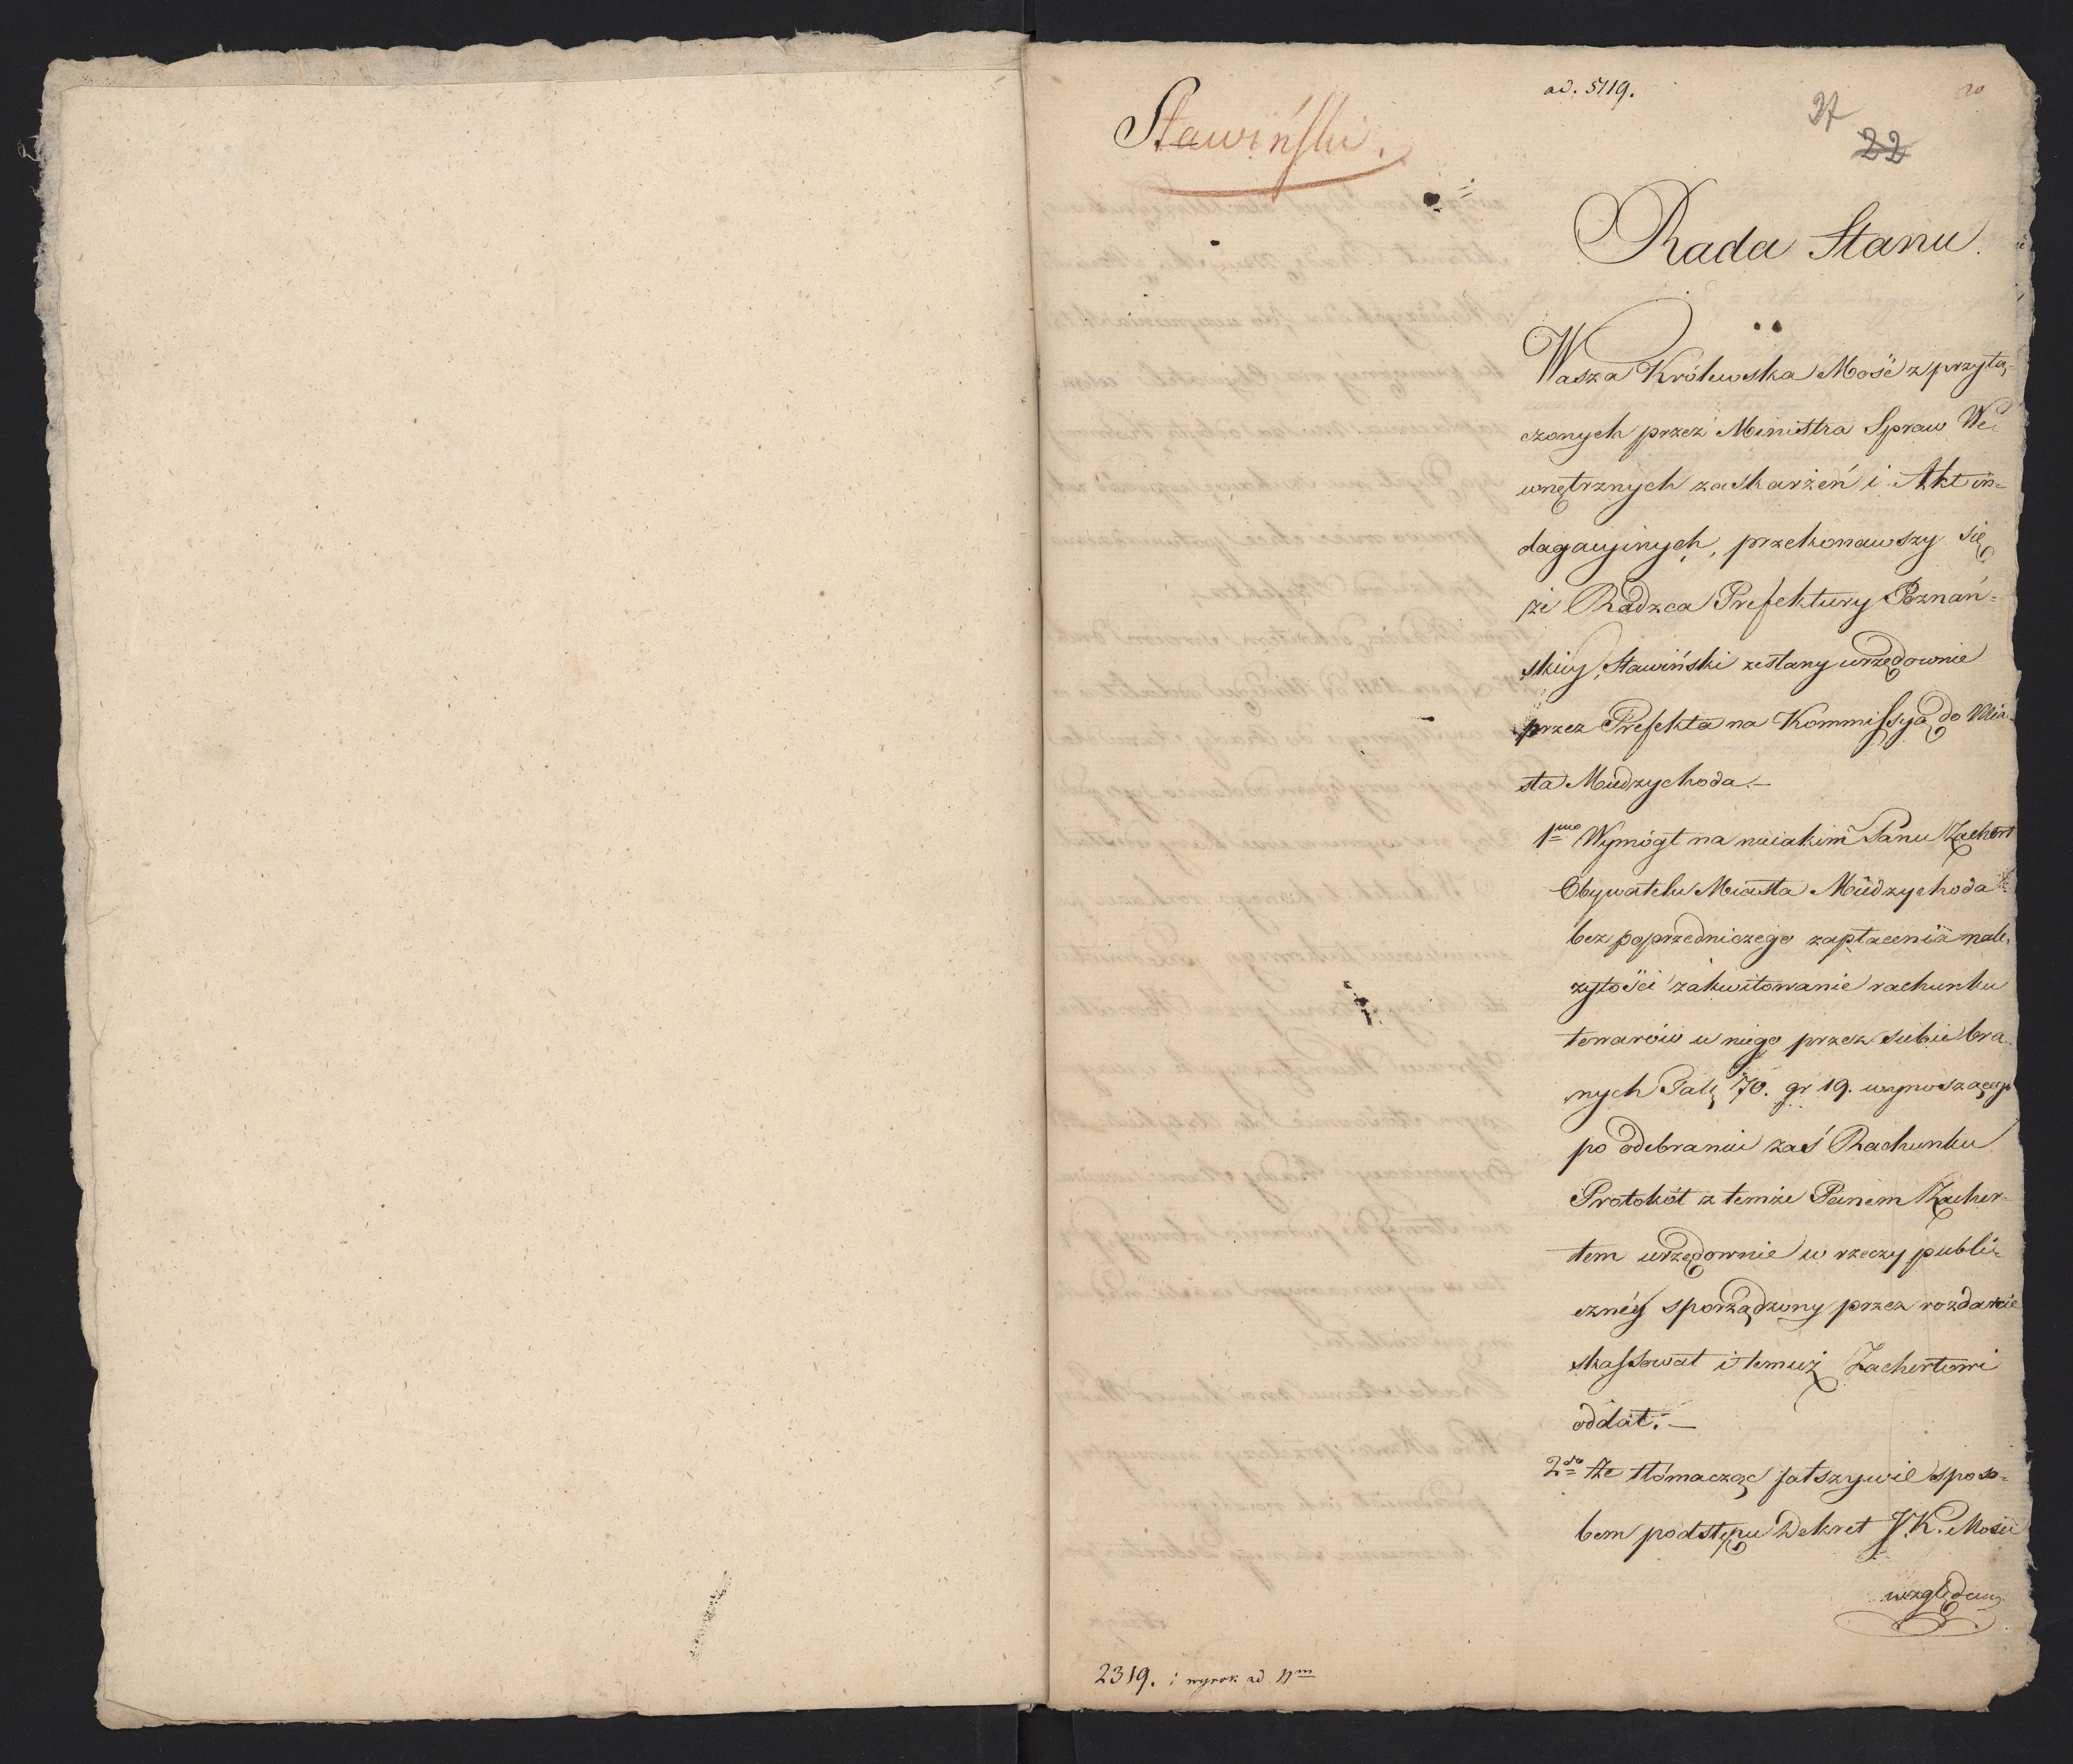 Sławiński.
ad. 5119.
20
37
22
Rada Stanu.
Wasza Królewska Mość z przyłą-
czonych przez Ministra Spraw We-
wnętrznych zaskarżeń i Akt in-
dagacyinych, przekonawszy się
że Radzca Prefektury Poznań-
skiey, Sławiński zesłany urzędownie
przez Prefekta na Kommissyą do Mia-
sta Miedzychoda. —
1mo Wymógł na nieiakim Panu Zachert
Obywatelu Miasta Miedzychoda
bez poprzedniczego zapłacenia nale-
żytości zakwitowanie rachunku
towarów u niego przez siebie bra-
nych Tal. 70. gr 19. wynoszącego
po odebraniu zaś Rachunku
Protokół z temże Panem Zacher-
tem urzędownie w rzeczy publi-
cznéy sporządzony przez rozdarcie
skassował i temuż Zachertowi
oddał. —
2do że tłómacząc fałszywie sposo-
bem podstępu Dekret J. K. Mości
względem
2319. i wyrok ad 11m